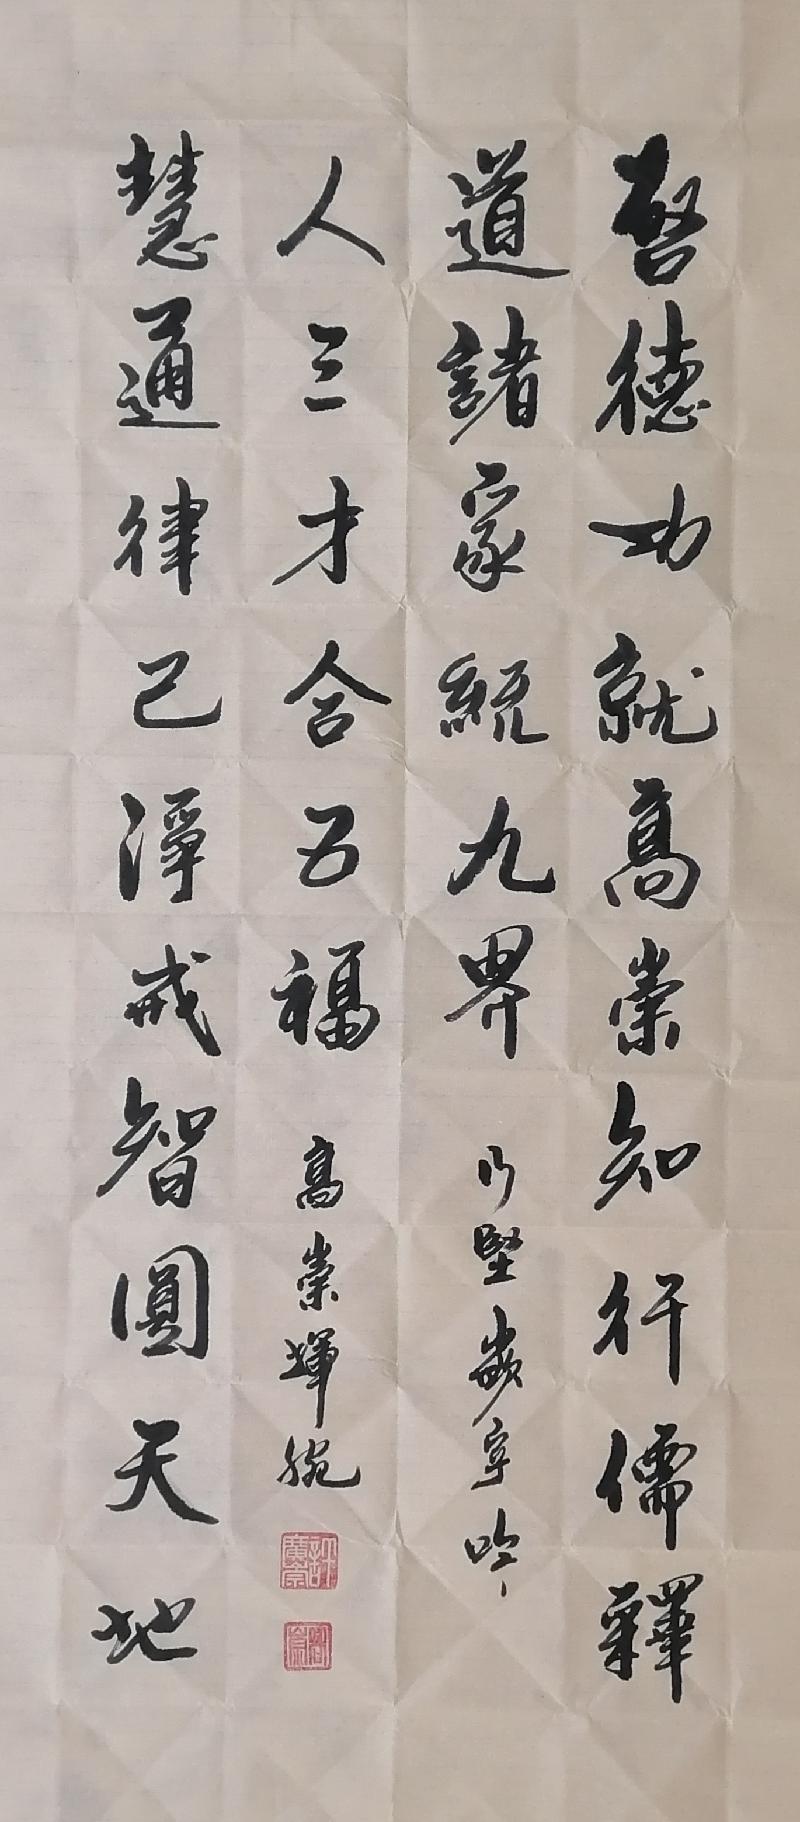 啓德功就高崇知行儒釋
道諸家統九界
堅歲字吟
慧通律己淨戒智圓天地
人三才合五福
高崇輝腕